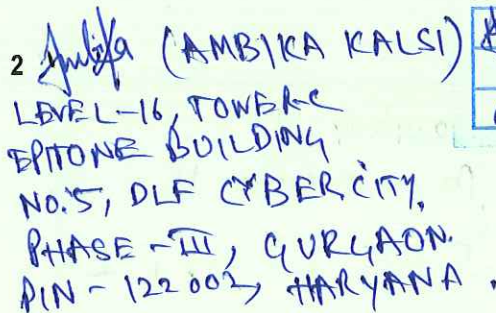 2 Ambika (AMBIKA KALSI)
LEVEL-16, TOWER-C
EPITOME BUILDING
NO.5, DLF CYBER CITY,
PHASE-III, GURGAON.
PIN-122002, HARYANA.